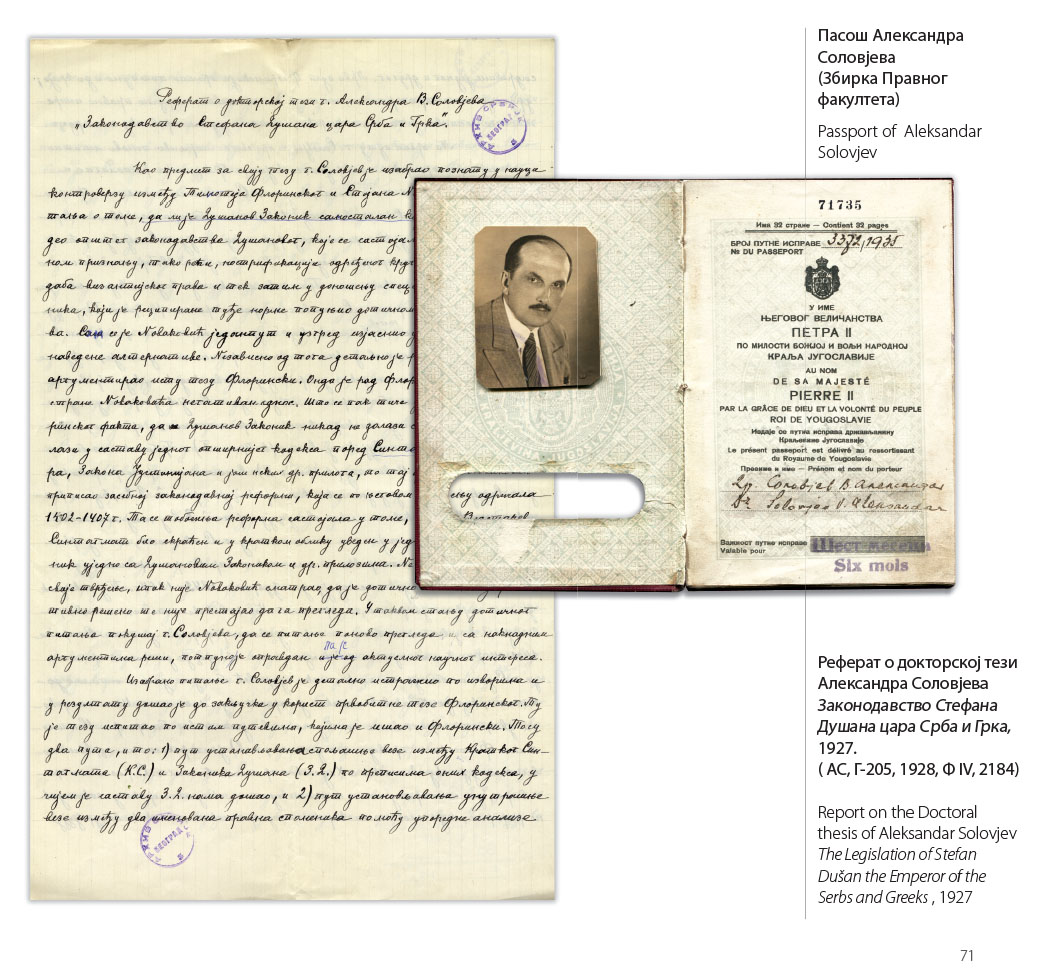 Реферат о докторској тези г. Александра В. Соловјева
„Законодавство Стефана Душана цара Срба и Грка".
АРХИВ СРБИЈЕ
БЕОГРАД
Као предмет за своју тезу г. Соловјев је изабрао познату у науци
контроверзу између Тимотеја Флоринског и Стојана
питања о томе, да ли је Душанов Законик самосталан
део општег законодавства Душановог, које се састојал
ном признању, тако рећи, нострификација одређеног
даба византијског права и тек затим у доношењу
ника, који је реципиране туђе норме попуњио
ва. Сам се је Новаковић једанпут и узгред изјаснио
наведене алтернативе. Независно од тога детаљно је
аргументирао исту тезу Флорински. Онда је рад
стране Новаковића негативан однос. Што се пак тиче
ринског факта, да Душанов Законик никад не долази
лази у саставу једног опширнијег кодекса поред
ра, Закона Јустинијана и још неких др. прилога, то
приписао засебној законодавној реформи, која се по његовом
1402-1407 г. Та се тобожња реформа састојала у томе,
Синтагмат био скраћен и у кратком облику уведен у
ник уједно са Душановим Закоником и др. прилозима.
своје тврђење, пак није Новаковић сматрао да је
тивно решено те није престајао да га прегледа. У таквом стању дотичног
питања покушај г. Соловјева, да се питање поново прегледа и са накнадним
аргументима реши, потпуно је оправдан и је од актуелног научног интереса.
Изабрано питање г. Соловјев је детаљно истражио по изворима и
у резултату дошао је до закључка у корист првобитне тезе Флоринског. Ту
је тезу испитао по истим путевима, којима је ишао и Флорински. То су
два пута, и то: 1) пут установљавања спољашње везе између Кратког Син-
тагмата (К.С.) и Законика Душана (З.Д.) по преписима оних кодекса, у
чијем је саставу З.Д. нама дошао, и 2) пут установљавања унутрашње
везе између два именована правна споменика помоћу упоредне анализе
АРХИВ СРБИЈЕ
БЕОГРАД
њу одржала
Властаров
71735
Има 32 стране — Contient 32 pages
БРОЈ ПУТНЕ ИСПРАВЕ 3372/1935
№ DU PASSEPORT
У ИМЕ
ЊЕГОВОГ ВЕЛИЧАНСТВА
ПЕТРА II
ПО МИЛОСТИ БОЖЈОЈ И ВОЉИ НАРОДНОЈ
КРАЉА ЈУГОСЛАВИЈЕ
AU NOM
DE SA MAJESTÉ
PIERRE II
PAR LA GRÂCE DE DIEU ET LA VOLONTÉ DU PEUPLE
ROI DE YOUGOSLAVIE
Издаје се путна исправа држављанину
Краљевине Југославије
Le présent passeport est délivré au ressortissant
du Royaume de Yougoslavie
Презиме и име — Prénom et nom du porteur
Др. Соловјев В. Александар
Dr Solovjev V. Aleksandar
Важност путне исправе Шест месеци
Valable pour
Six mois
Пасош Александра
Соловјева
(Збирка Правног
факултета)
Passport of Aleksandar
Solovjev
Реферат о докторској тези
Александра Соловјева
Законодавство Стефана
Душана цара Срба и Грка,
1927.
( АС, Г-205, 1928, Ф IV, 2184)
Report on the Doctoral
thesis of Aleksandar Solovjev
The Legislation of Stefan
Dušan the Emperor of the
Serbs and Greeks , 1927
71